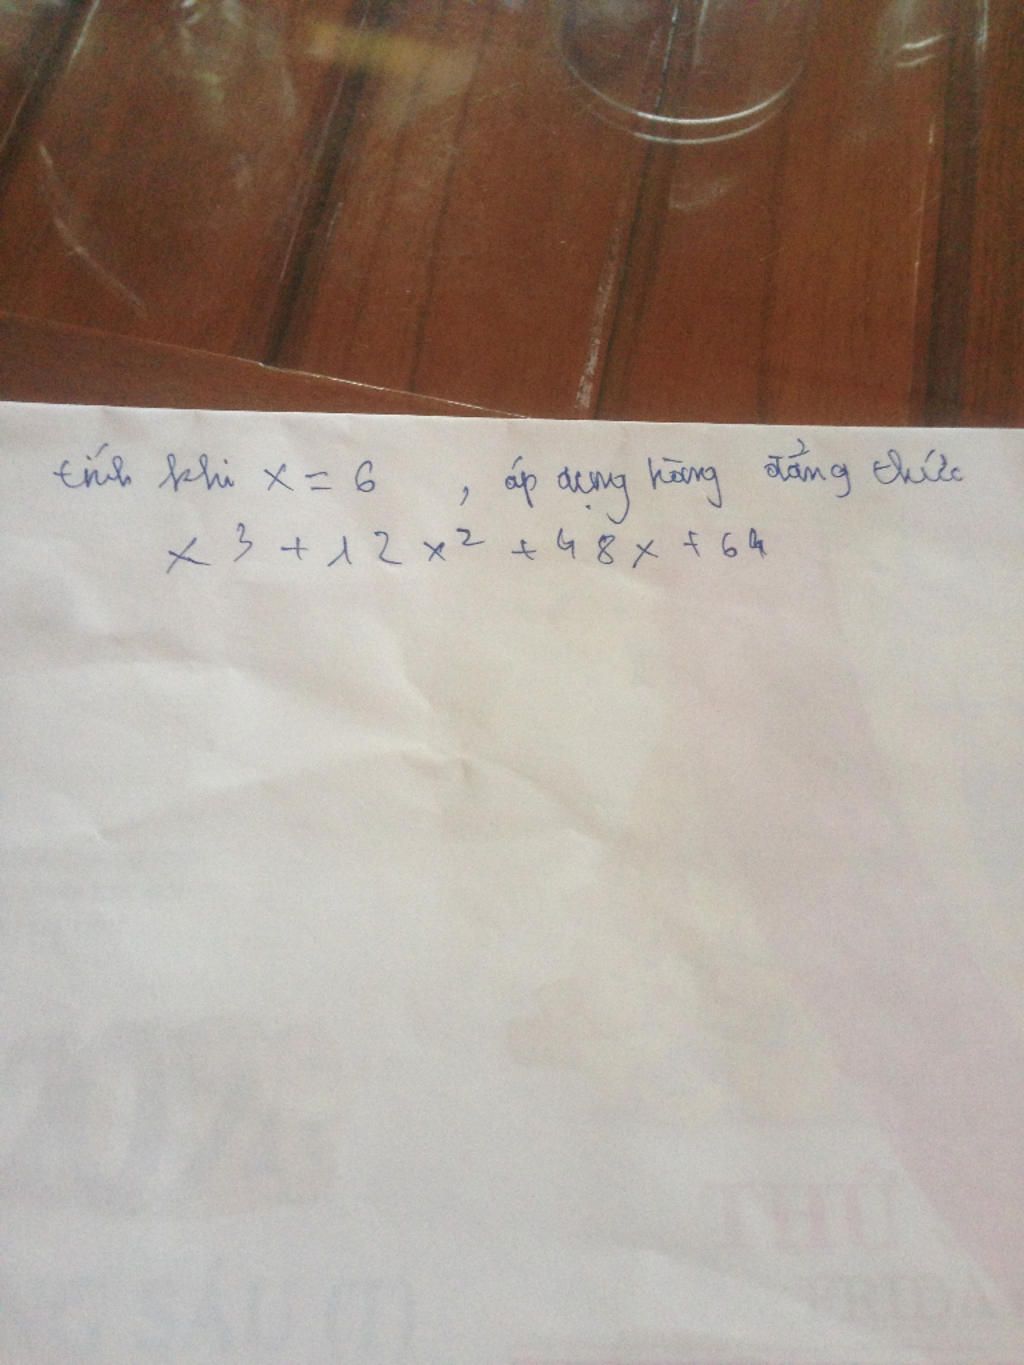 tính khi x = 6 , áp dụng hằng đẳng thức
x³ + 12x² + 48x + 64